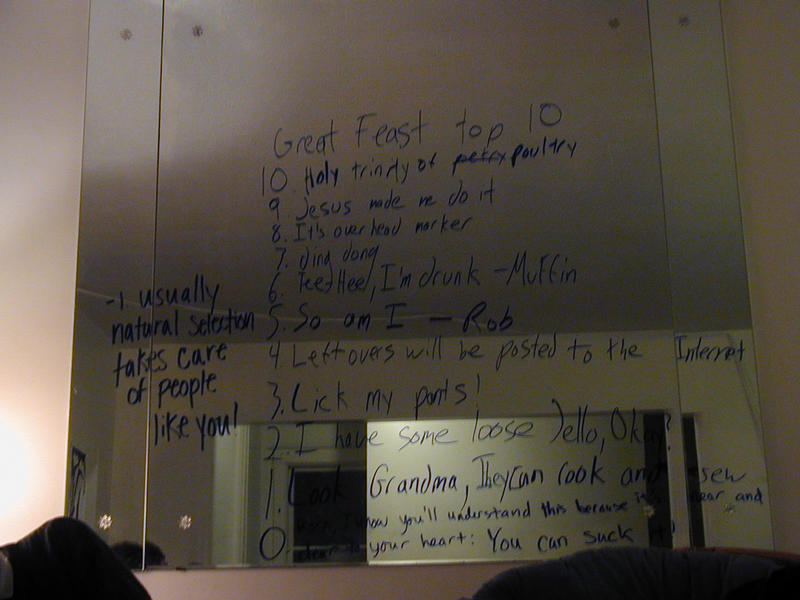 Great Feast top 10
10. Holy trinity of poultry
9. Jesus made me do it
8. It's overhead marker
7. ding dong
6. Teet Hee, I'm drunk - Muffin
5. So am I - Rob
4. Leftovers will be posted to the Internet
3. Lick my pants!
2. I have some loose Jello, Okay?
1. Look Grandma, They can cook and sew
0 I know you'll understand this because it's near and
dear to your heart: You can suck it!
-1 usually
natural selection
takes care
of people
like you!